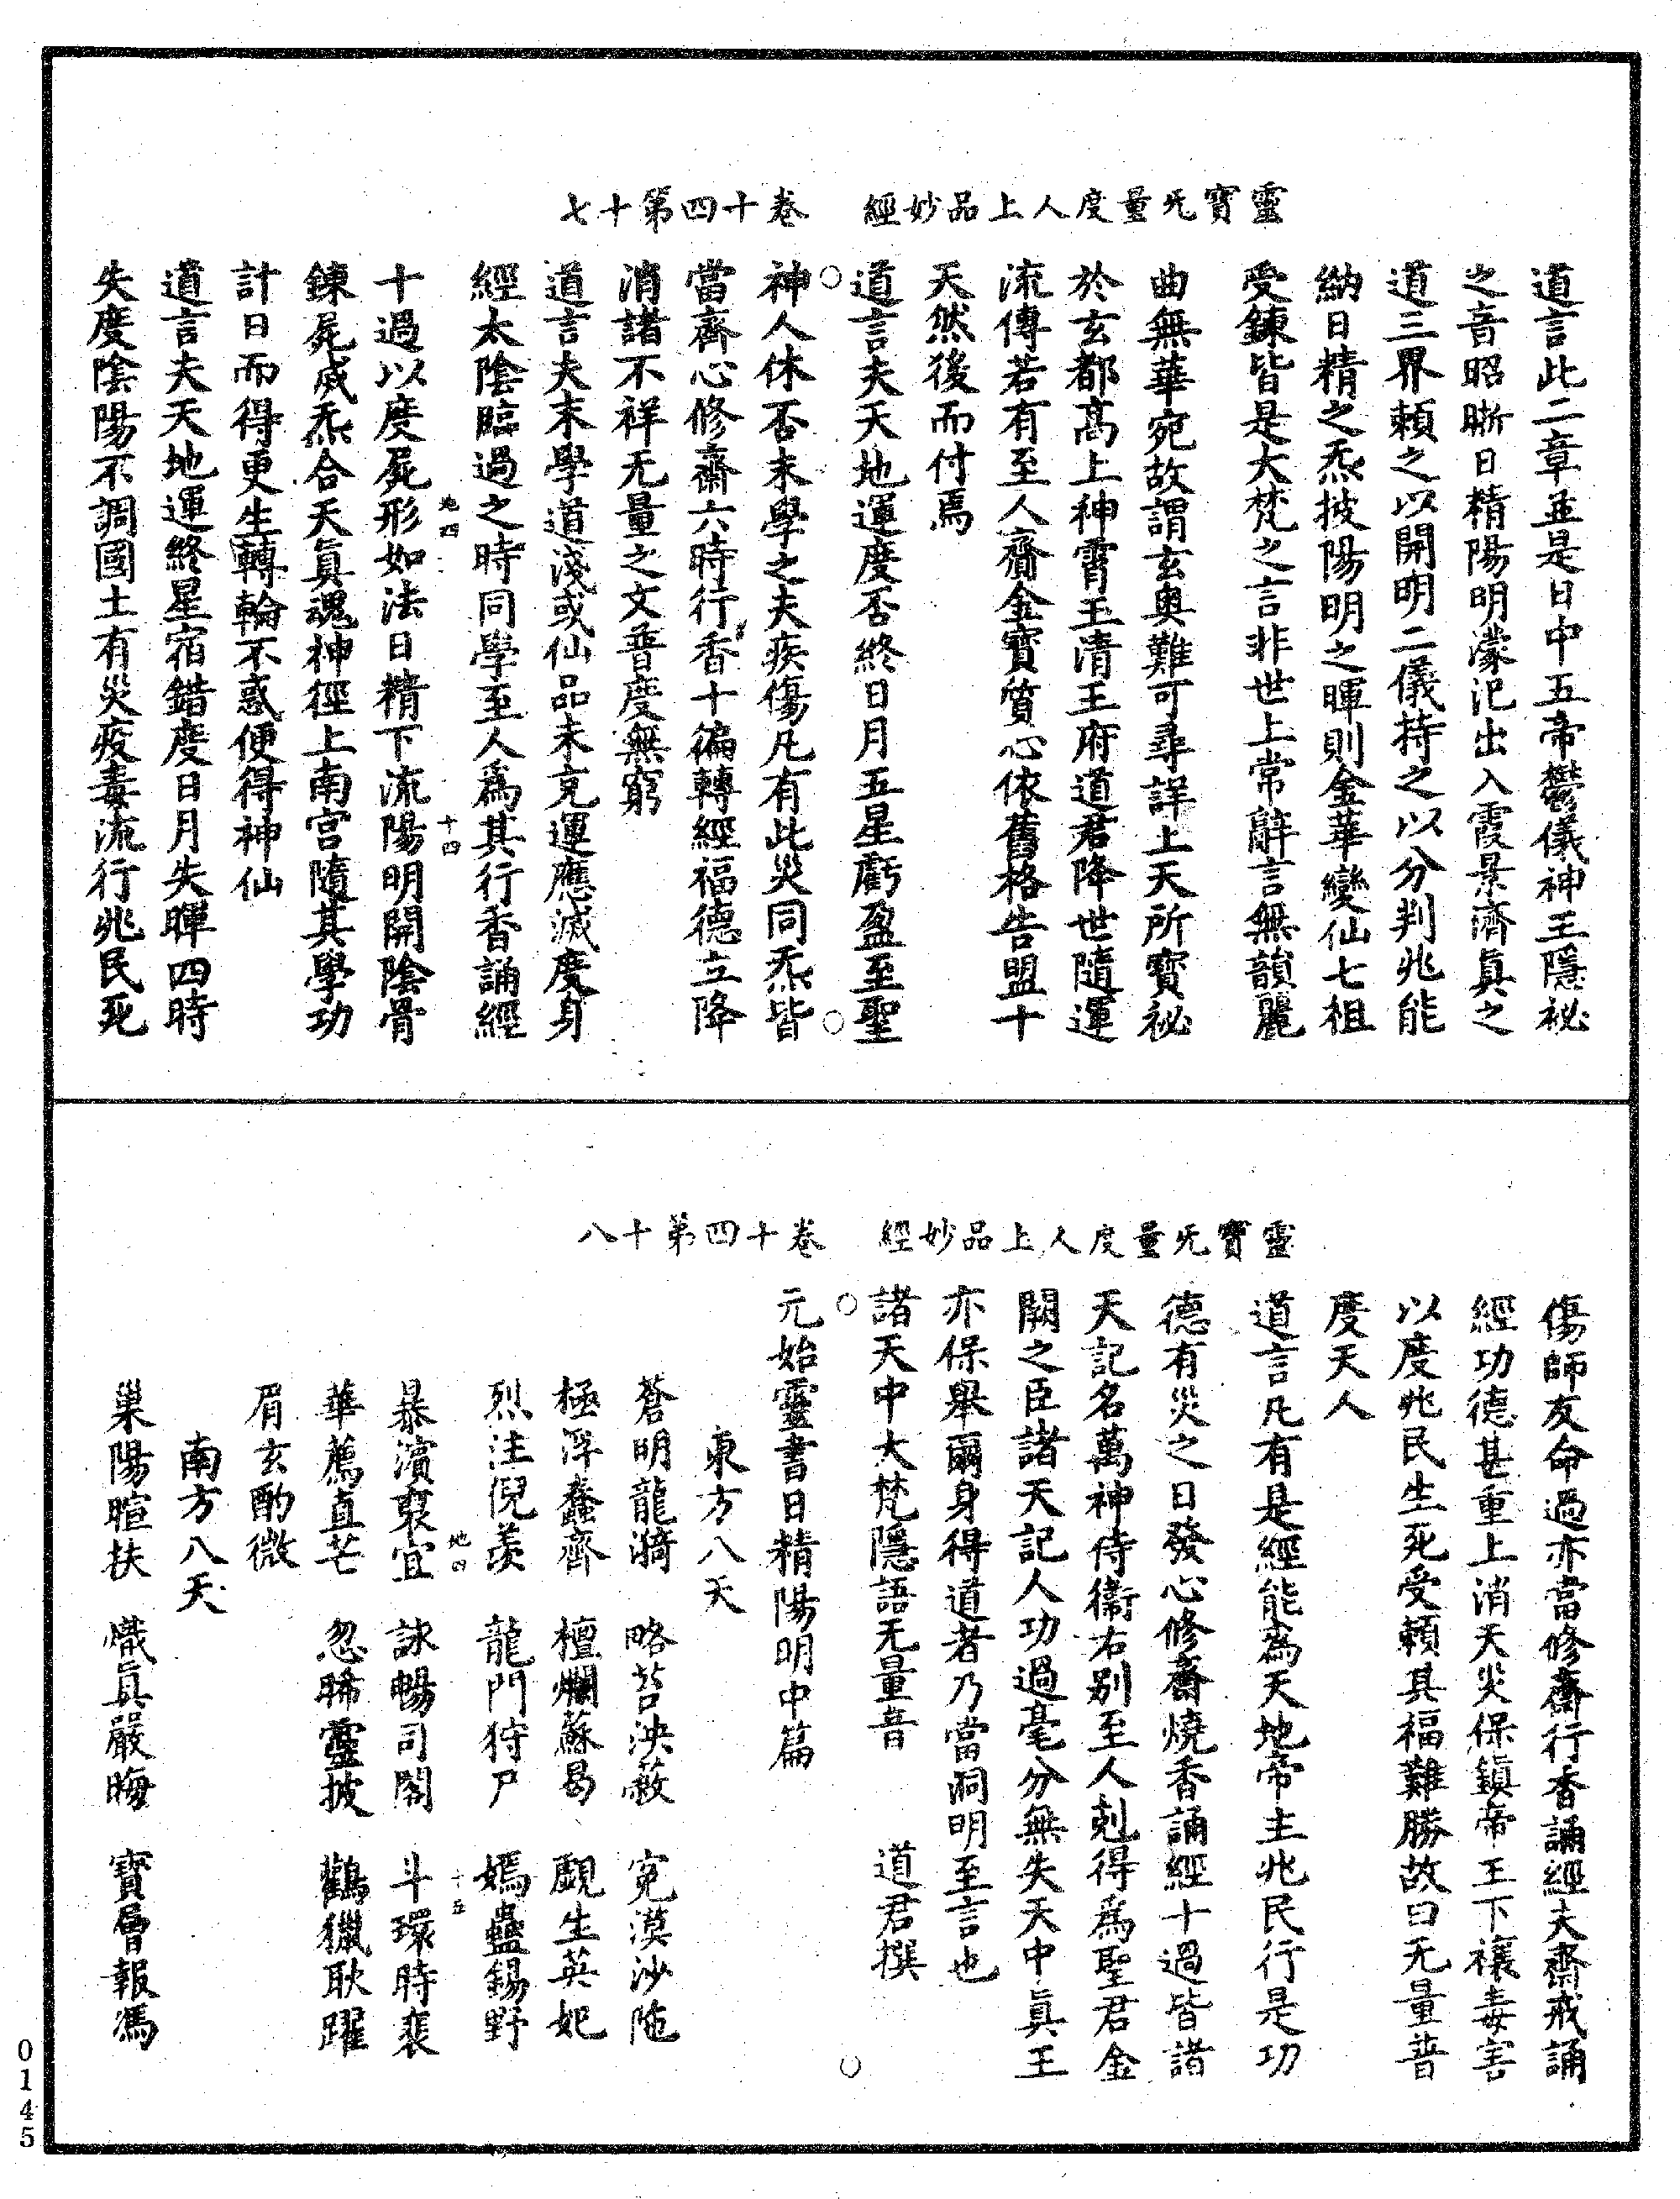 靈寶无量度人上品妙經　卷十四第十七
道言此二章並是日中五帝鬱儀神王隱祕
之音昭晰日精陽明濛汜出入霞景濟真之
道三界賴之以開明二儀持之以分判兆能
納日精之炁披陽明之暉則金華變仙七祖
受鍊皆是大梵之言非世上常辭言無韻麗
曲無華宛故謂玄奧難可尋詳上天所寶祕
於玄都高上神霄玉清王府道君降世隨運
流傳若有至人齎金寶質心依舊格告盟十
天然後而付焉
道言夫天地運度否終日月五星虧盈至聖
神人休否末學之夫疾傷凡有此災同炁皆
當齊心修齋六時行香十徧轉經福德立降
消諸不祥无量之文普度無窮
道言夫末學道淺或仙品未充運應滅度身
經太陰臨過之時同學至人為其行香誦經
十過以度屍形如法日精下流陽明開陰骨
地四
十四
鍊屍成炁合天真魂神徑上南宮隨其學功
計日而得更生轉輪不惑便得神仙
道言夫天地運終星宿錯度日月失暉四時
失度陰陽不調國土有災疫毒流行兆民死
靈寶无量度人上品妙經　卷十四第十八
傷師友命過亦當修齋行香誦經夫齋戒誦
經功德甚重上消天災保鎮帝王下禳毒害
以度兆民生死受賴其福難勝故曰无量普
度天人
道言凡有是經能為天地帝主兆民行是功
德有災之日發心修齋燒香誦經十過皆諸
天記名萬神侍衛右別至人剋得為聖君金
闕之臣諸天記人功過毫分無失天中真王
亦保舉爾身得道者乃當洞明至言也
諸天中大梵隱語无量音　　道君撰
元始靈書日精陽明中篇
東方八天
蒼明龍漪　略苦泱蔽　宛漠沙陁
極浮蠢齊　檀爛蘇曷　覷生英妃
烈注倪羨　龍門狩尸　嫣蠱錫野
暴濱裒宜　詠暢司閣　斗環時裴
地四
十五
華薦直芒　忽晞靈披　鸛獵耿躍
眉玄酌微
南方八天
巢陽暄扶　熾真嚴晦　寶層報馮
0145